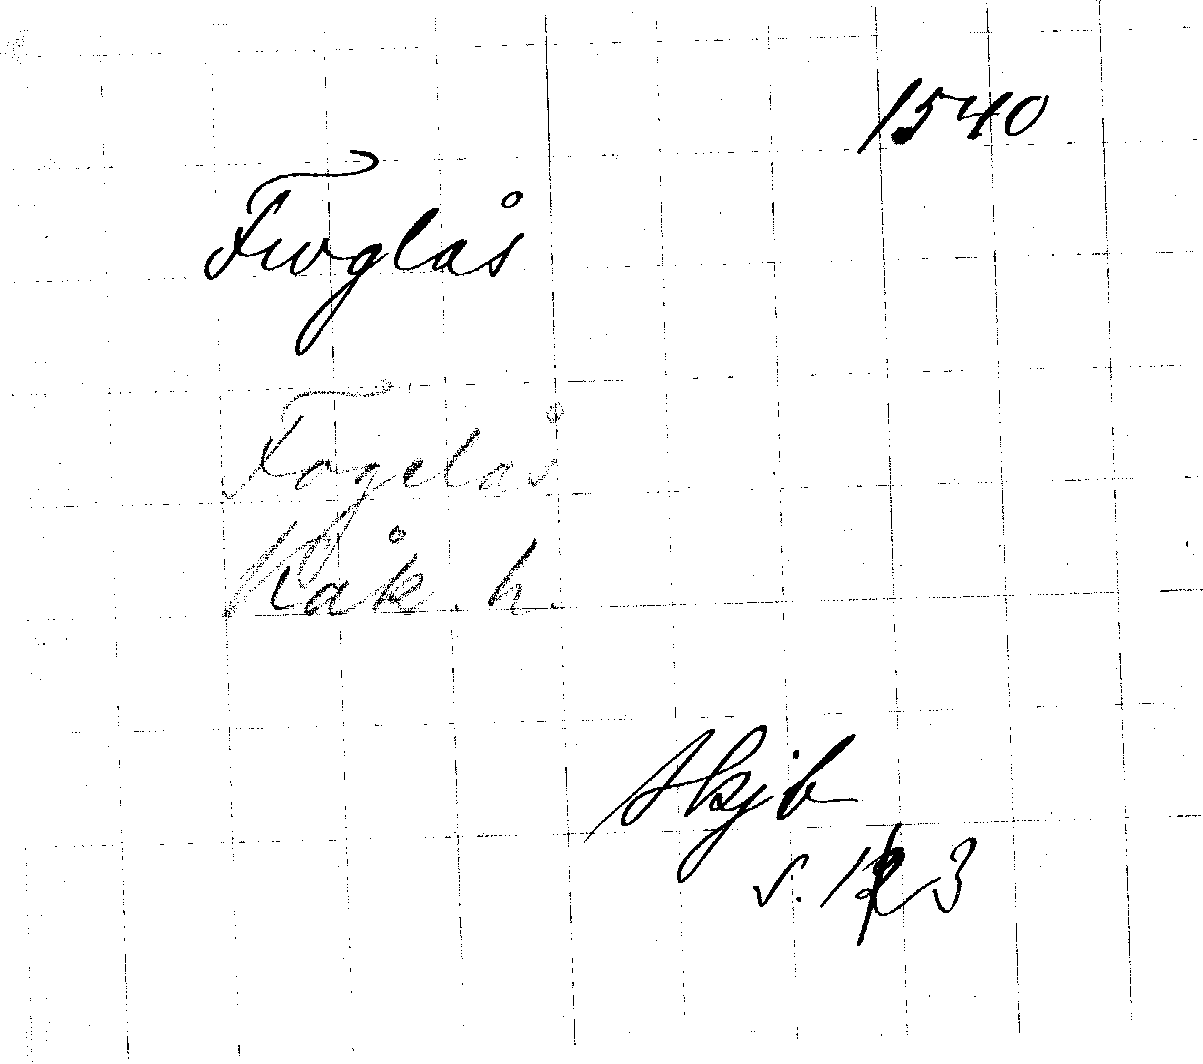 1540
Fuoglås
Fogelås
Kåk. h.
Skjb
s. 123